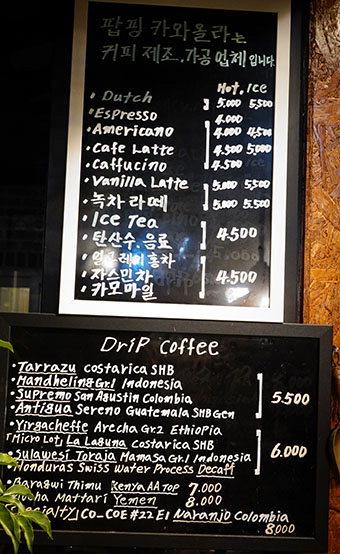 팝핑 카와올라는
커피 제조.가공 업체 입니다.
Hot. Ice
• Dutch 5.000 5.500
• Espresso 4.000
• Americano 4.000 4.500
• Cafe Latte 4.500 5.000
• Caffucino 4.500
• Vanilla Latte 5.000 5.500
• 녹차 라떼 5.000 5.500
• Ice Tea
• 탄산수.음료 4.500
• 얼그레이홍차
• 자스민차
• 카모마일
Drip Coffee
• Tarrazu costarica SHB
• Mandheling Gr.1 Indonesia
• Supremo San Agustin Colombia 5.500
• Antigua Sereno Guatemala SHB Gen
• Yirgacheffe Arecha Gr.2 Ethiopia
「Micro Lot」 La Laguna costarica SHB
• Sulawesi Toraja Mamasa Gr.1 Indonesia 6.000
• Honduras Swiss Water Process Decaf
Thimu Kenya AA TOP 7.000
Mocha Mattari Yemen 8.000
「Specialty」 CO-COE #22 E1 Naranjo Colombia
8.000